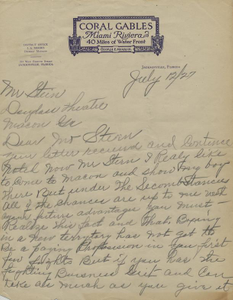 CORAL GABLES
Miami Riviera
40 Miles of Water Front
July 12/27
Mr Stern
Douglass Theatre
Macon Ga
Dear Mr Stern
your letter received and Contence
Noted Now Mr Stern I Realy like
to Come to Macon and show my boy
there But under the Second Stances
the Chances are up to me with
future advantage you Must
Realize this fact and that Boxing
in a New territory has Not got to
be a Paying in your first
few fights But if you has the
fighting Business Grit and Can
take as much as you give it